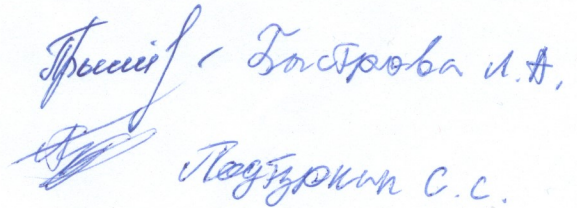 - Быстрова Л.А.
Подтуркин С.С.